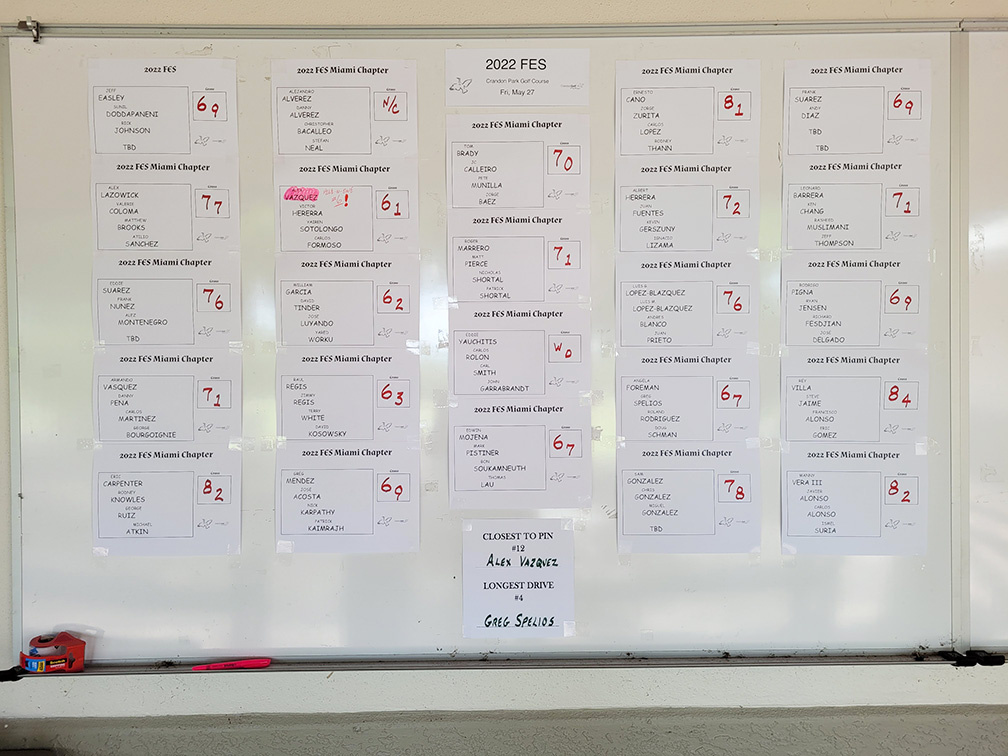 2022 FES
JEFF
EASLEY
SUNIL
DODDAPANENI
RICK
JOHNSON
TBD
69
2022 FES Miami Chapter
ALEX
LAZOWICK
VALERIE
COLOMA
MATTHEW
BROOKS
ATILIO
SANCHEZ
77
2022 FES Miami Chapter
EDDIE
SUAREZ
FRANK
NUNEZ
ALEZ
MONTENEGRO
TBD
76
2022 FES Miami Chapter
ARMANDO
VASQUEZ
DANNY
PENA
CARLOS
MARTINEZ
GEORGE
BOURGOIGNIE
71
2022 FES Miami Chapter
ERIC
CARPENTER
RODNEY
KNOWLES
GEORGE
RUIZ
MICHAEL
ATKIN
82
2022 FES Miami Chapter
ALEJANDRO
ALVEREZ
DANNY
ALVEREZ
CHRISTOPHER
BACALLEO
STEFAN
NEAL
N/C
2022 FES Miami Chapter
VAZQUEZ
VICTOR
HERERRA
YASBEN
SOTOLONGO
CARLOS
FORMOSO
61
2022 FES Miami Chapter
WILLIAM
GARCIA
DAVID
TINDER
JOSE
LUYANDO
YARED
WORKU
62
2022 FES Miami Chapter
RAUL
REGIS
JIMMY
REGIS
TERRY
WHITE
DAVID
KOSOWSKY
63
2022 FES Miami Chapter
GREG
MENDEZ
JOSE
ACOSTA
NICK
KARPATHY
PATRICK
KAIMRAJH
69
2022 FES
Crandon Park Golf Course
Fri, May 27
2022 FES Miami Chapter
TOM
BRADY
JC
CALLEIRO
PETE
MUNILLA
JORGE
BAEZ
70
2022 FES Miami Chapter
ROGER
MARRERO
MATT
PIERCE
NICHOLAS
SHORTAL
PATRICK
SHORTAL
71
2022 FES Miami Chapter
EDDIE
YAUCHITIS
CARLOS
ROLON
CARL
SMITH
JOHN
GARRABRANDT
WD
2022 FES Miami Chapter
EDWIN
MOJENA
MARK
PISTINER
DON
SOUKAMNEUTH
THOMAS
LAU
67
CLOSEST TO PIN
#12
ALEX VAZQUEZ
LONGEST DRIVE
#4
GREG SPELIOS
2022 FES Miami Chapter
ERNESTO
CANO
JORGE
ZURITA
CARLOS
LOPEZ
RODNEY
THANN
81
2022 FES Miami Chapter
ALBERT
HERRERA
JUAN
FUENTES
KEVIN
GERSZUNY
IGNACIO
LIZAMA
72
2022 FES Miami Chapter
LUIS G.
LOPEZ-BLAZQUEZ
LUIS M.
LOPEZ-BLAZQUEZ
ANDRES
BLANCO
JUAN
PRIETO
76
2022 FES Miami Chapter
ANGELA
FOREMAN
GREG
SPELIOS
ROLAND
RODRIGUEZ
DOUG
SCHMAN
67
2022 FES Miami Chapter
SAM
GONZALEZ
CHRIS
GONZALEZ
MIGUEL
GONZALEZ
TBD
78
2022 FES Miami Chapter
FRANK
SUAREZ
ANDY
DIAZ
TBD
TBD
69
2022 FES Miami Chapter
LEONARD
BARRERA
KEN
CHANG
BASHEED
MUSLIMANI
JEFF
THOMPSON
71
2022 FES Miami Chapter
RODRIGO
PIGNA
RYAN
JENSEN
RICHARD
FESDJIAN
JOSE
DELGADO
69
2022 FES Miami Chapter
REY
VILLA
STEVE
JAIME
FRANCISCO
ALONSO
ERIC
GOMEZ
84
2022 FES Miami Chapter
MANNY
VERA III
JAVIER
ALONSO
CARLOS
ALONSO
ISAEL
SURIA
82